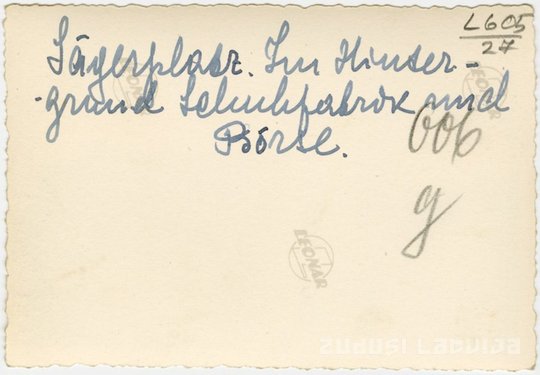 L605
27
Jägerplatz. Im Hinter-
grund Schuhfabrik und
Börse.
006
g
LEONAR
zudusi Latvija